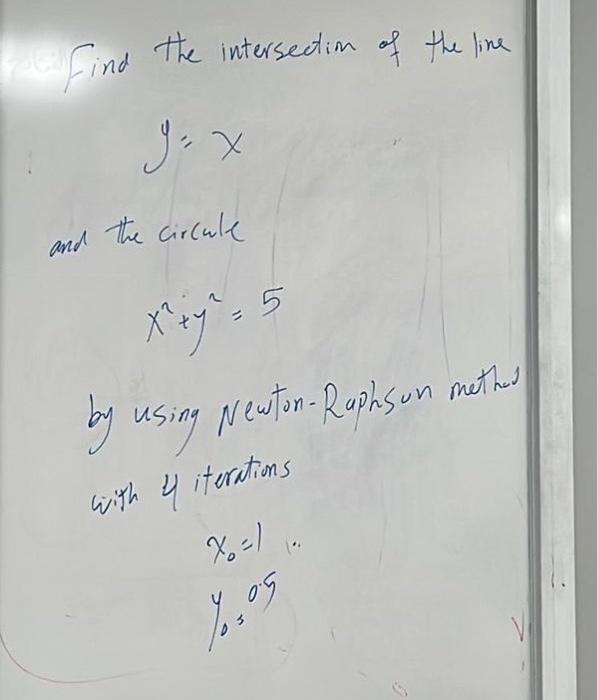 Find the intersection of the line
y = x
and the circule
x² + y² = 5
by using Newton-Raphson method
with 4 iterations
x₀ = 1
y₀ = 0.5